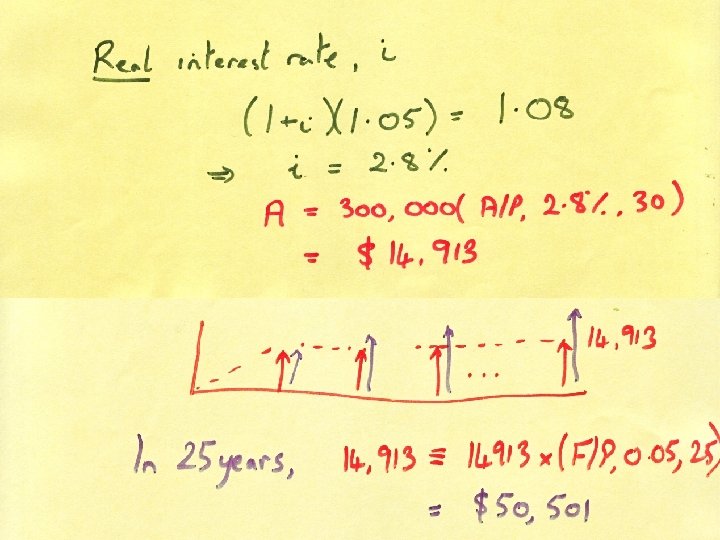 Real interest rate, i
(1+i)(1.05) = 1.08
⇒ i = 2.8%
A = 300,000( A/P, 2.8%, 30)
= $14,913
14,913
...
In 25 years, 14,913 ≡ 14913 x (F/P, 0.05, 25)
= $50,501